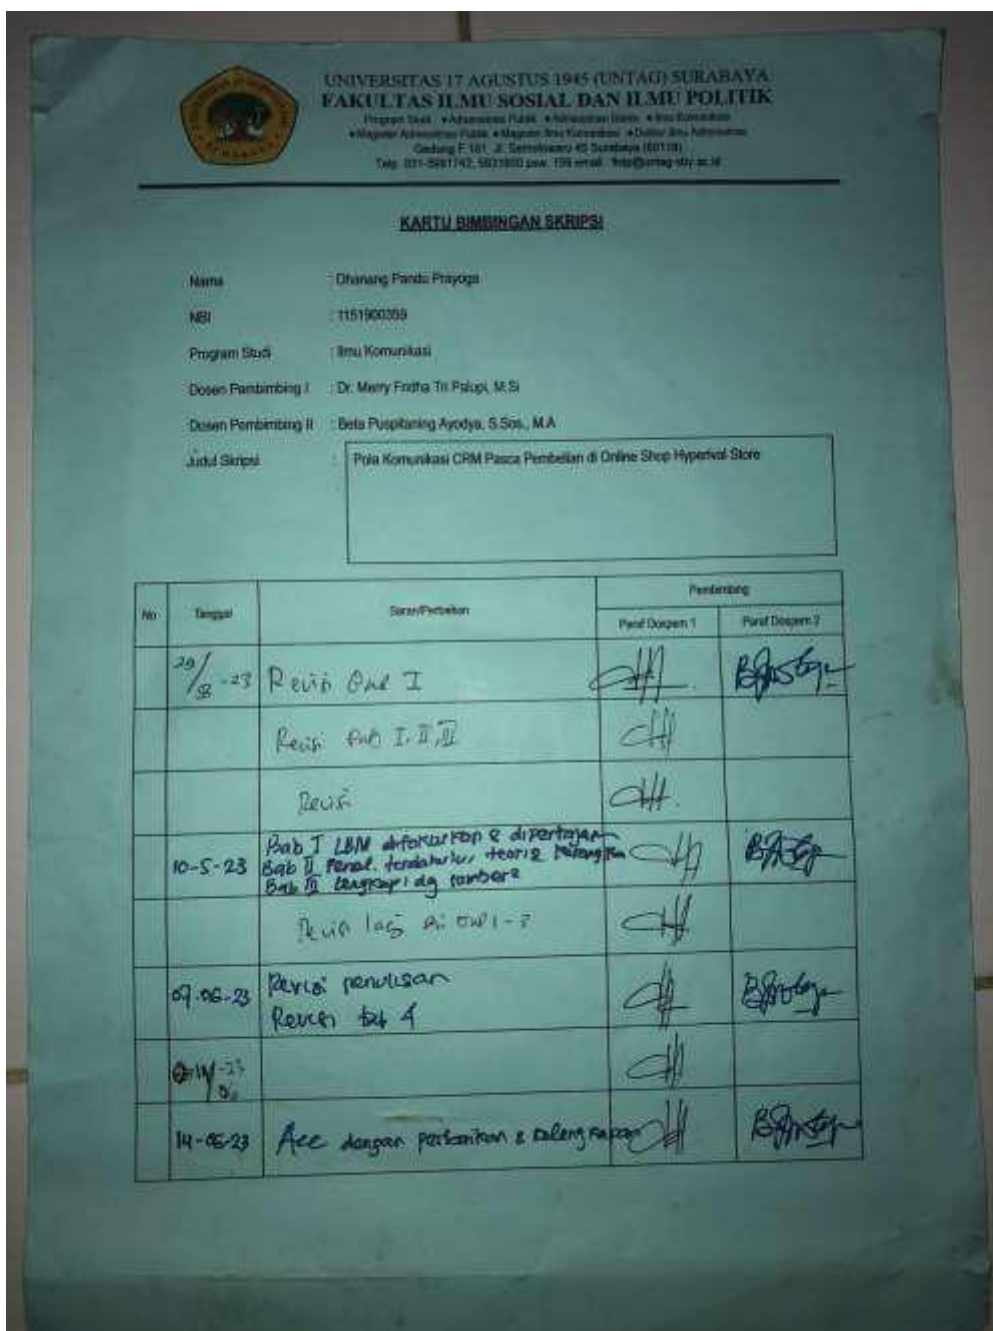 UNIVERSITAS 17 AGUSTUS 1945 (UNTAG) SURABAYA
FAKULTAS ILMU SOSIAL DAN ILMU POLITIK
Program Studi • Administrasi Publik • Administrasi Bisnis • Ilmu Komunikasi
• Magister Administrasi Publik • Magister Ilmu Komunikasi • Doktor Ilmu Administrasi
Gedung F 101, Jl. Semolowaru 45 Surabaya (60118)
Telp. 031-5931742, 5931800 psw. 159 email : fisip@untag-sby.ac.id
KARTU BIMBINGAN SKRIPSI
Nama : Dhanang Pandu Prayoga
NBI : 1151900359
Program Studi : Ilmu Komunikasi
Dosen Pembimbing I : Dr. Merry Fridha Tri Palupi, M.Si
Dosen Pembimbing II : Beta Puspitaning Ayodya, S.Sos., M.A
Judul Skripsi : Pola Komunikasi CRM Pasca Pembelian di Online Shop Hyperival Store
No Tanggal Saran/Perbaikan Pembimbing
Paraf Dospem 1 Paraf Dospem 2
Revisi Bab I
Revisi Bab I, II, III
Revisi
10-5-23 Bab I LBM difokuskan & dipertajam
Bab II Penel. terdahulu, teori2
Bab III lengkapi dg
Revisi lagi
09-06-23 Revisi penulisan
Revisi bab 4
14-06-23 Acc dengan perbaikan &